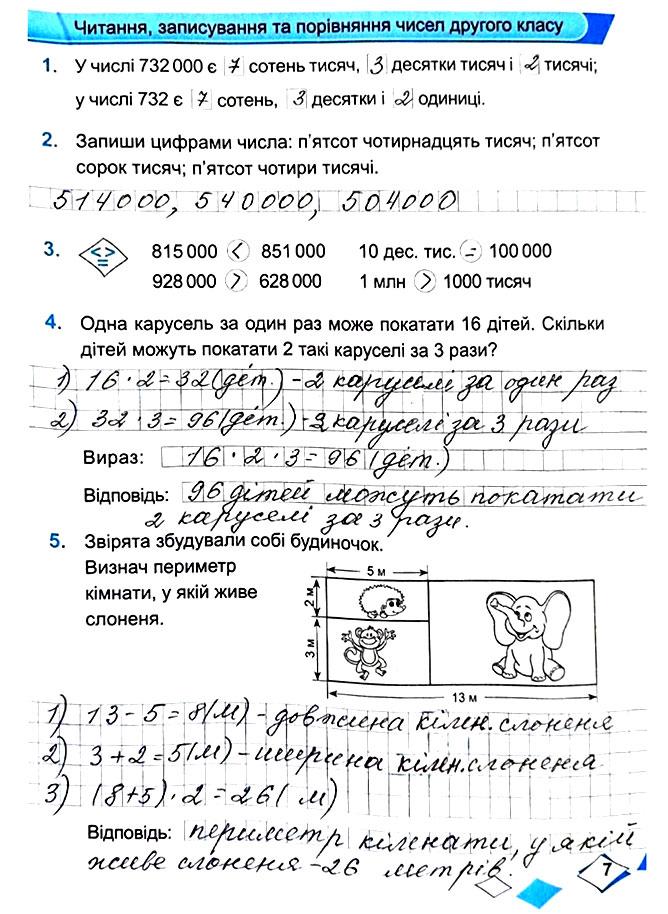 Читання, записування та порівняння чисел другого класу
1. У числі 732 000 є 7 сотень тисяч, 3 десятки тисяч і 2 тисячі;
у числі 732 є 7 сотень, 3 десятки і 2 одиниці.
2. Запиши цифрами числа: п'ятсот чотирнадцять тисяч; п'ятсот
сорок тисяч; п'ятсот чотири тисячі.
514000, 540000, 504000
3. < > = 815 000 < 851 000 10 дес. тис. = 100 000
928 000 > 628 000 1 млн > 1000 тисяч
4. Одна карусель за один раз може покатати 16 дітей. Скільки
дітей можуть покатати 2 такі каруселі за 3 рази?
1) 16 · 2 = 32 (діт.) - 2 каруселі за один раз
2) 32 · 3 = 96 (діт.) - 2 каруселі за 3 рази
Вираз: 16 · 2 · 3 = 96 (діт.)
Відповідь: 96 дітей можуть покатати
2 каруселі за 3 рази.
5. Звірята збудували собі будиночок.
Визнач периметр
кімнати, у якій живе
слоненя.
5 м
2 м
3 м
13 м
1) 13 - 5 = 8 (м) - довжина кімн. слоненя
2) 3 + 2 = 5 (м) - ширина кімн. слоненя
3) (8 + 5) · 2 = 26 (м)
Відповідь: периметр кімнати, у якій
живе слоненя - 26 метрів.
7